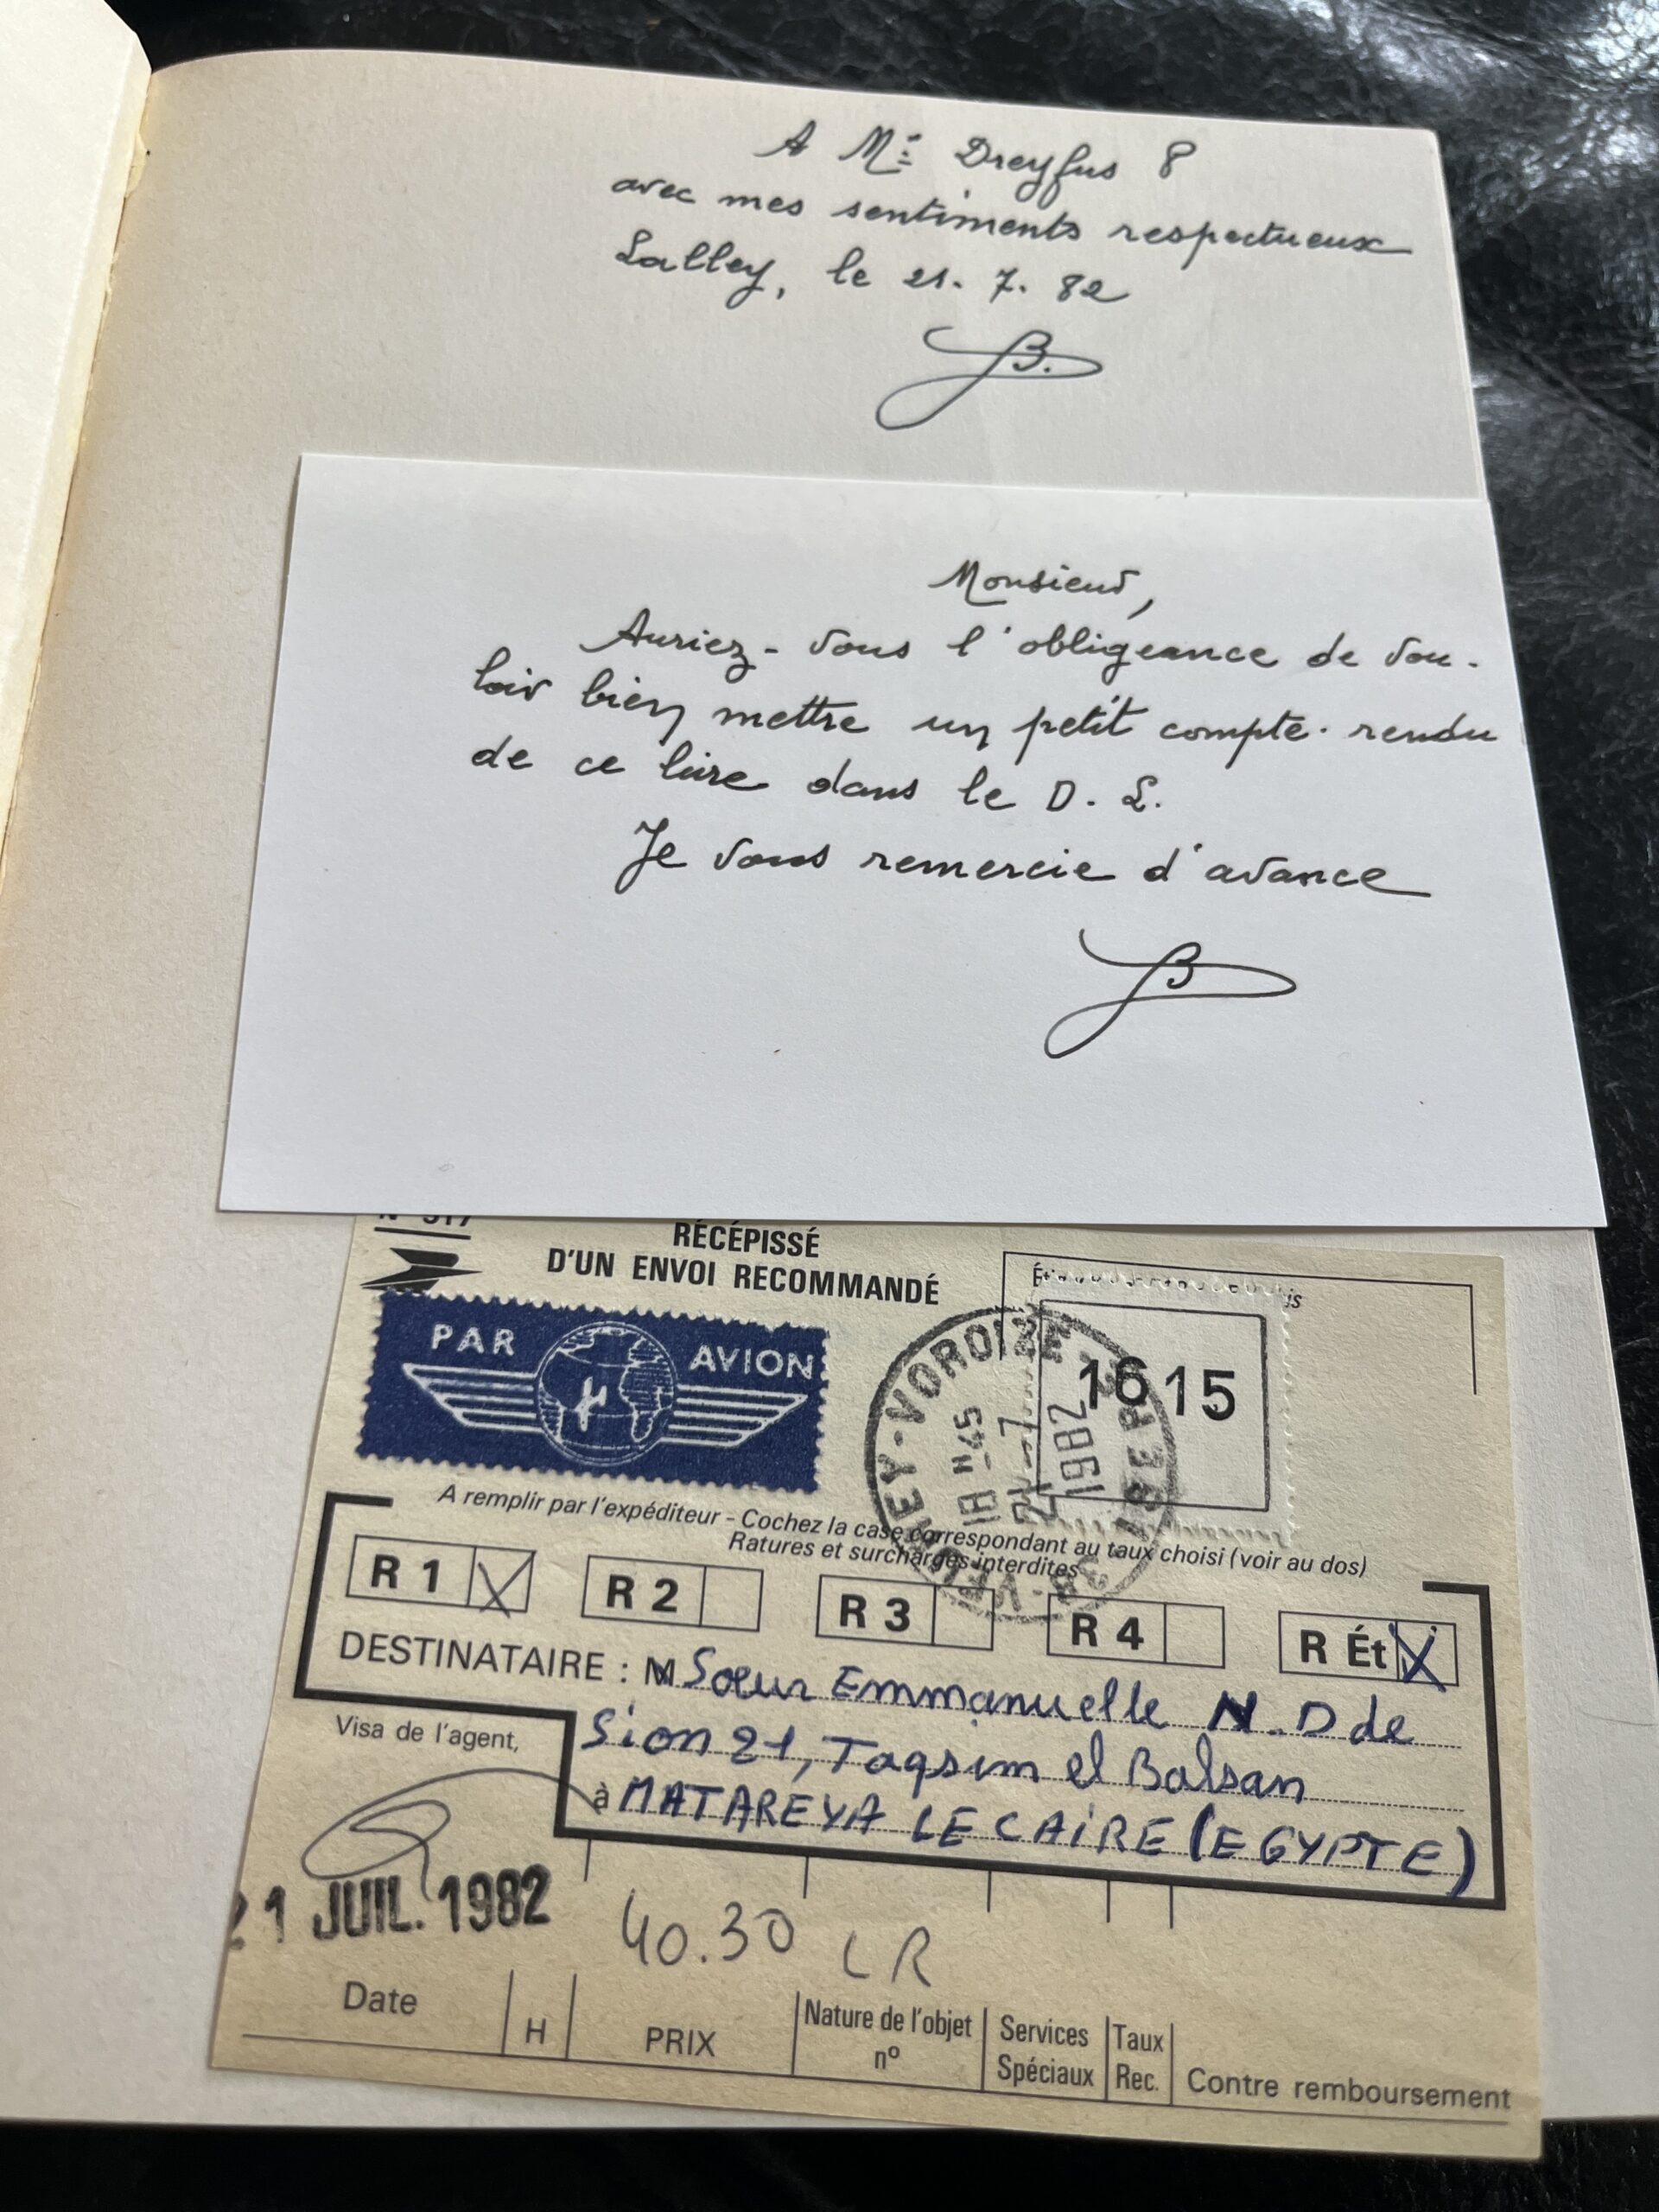 A Mr Dreyfus P
avec mes sentiments respectueux
Lalley, le 21. 7. 82
B.
Monsieur,
Auriez-vous l'obligeance de vou-
loir bien mettre un petit compte-rendu
de ce livre dans le D. L.
Je vous remercie d'avance
B
N° 517
RÉCÉPISSÉ
D'UN ENVOI RECOMMANDÉ
PAR AVION
VOROIZE
18H45
21-7
1982
ISERE
1615
A remplir par l'expéditeur - Cochez la case correspondant au taux choisi (voir au dos)
Ratures et surcharges interdites
R 1 X R 2 R 3 R 4 R Ét X
DESTINATAIRE : M Sœur Emmanuelle N.D de
Sion 21, Taqsim el Balsan
à MATAREYA LE CAIRE (EGYPTE)
Visa de l'agent,
21 JUIL. 1982
40.30 LR
Date H PRIX Nature de l'objet n° Services Spéciaux Taux Rec. Contre remboursement